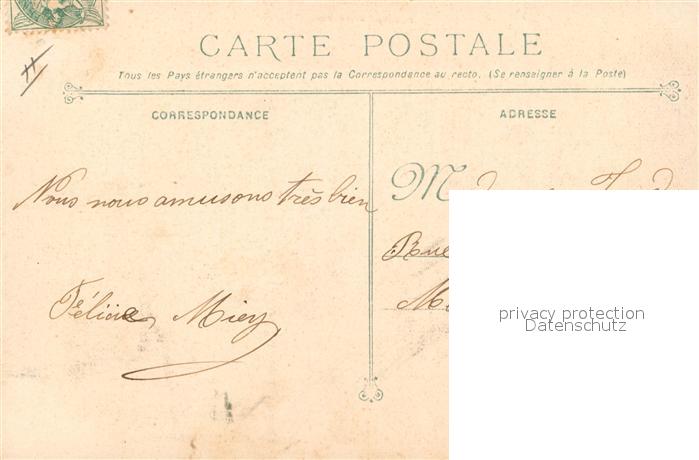 CARTE POSTALE
Tous les Pays étrangers n'acceptent pas la Correspondance au recto. (Se renseigner à la Poste)
CORRESPONDANCE
ADRESSE
Nous nous amusons très bien
Félicie Miey
M
Rue
privacy protection
Datenschutz